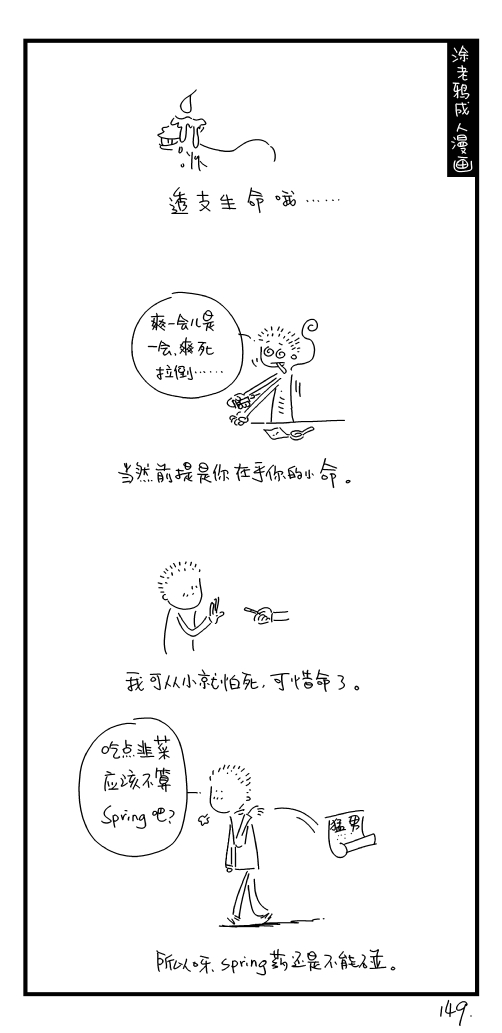 涂老鸦成人漫画
透支生命哦……
爽一会儿是
一会,爽死
拉倒……
当然前提是你在乎你的小命。
我可从小就怕死,可惜命了。
吃点韭菜
应该不算
Spring吧?
猛男
所以呀,spring药还是不能碰。
149.